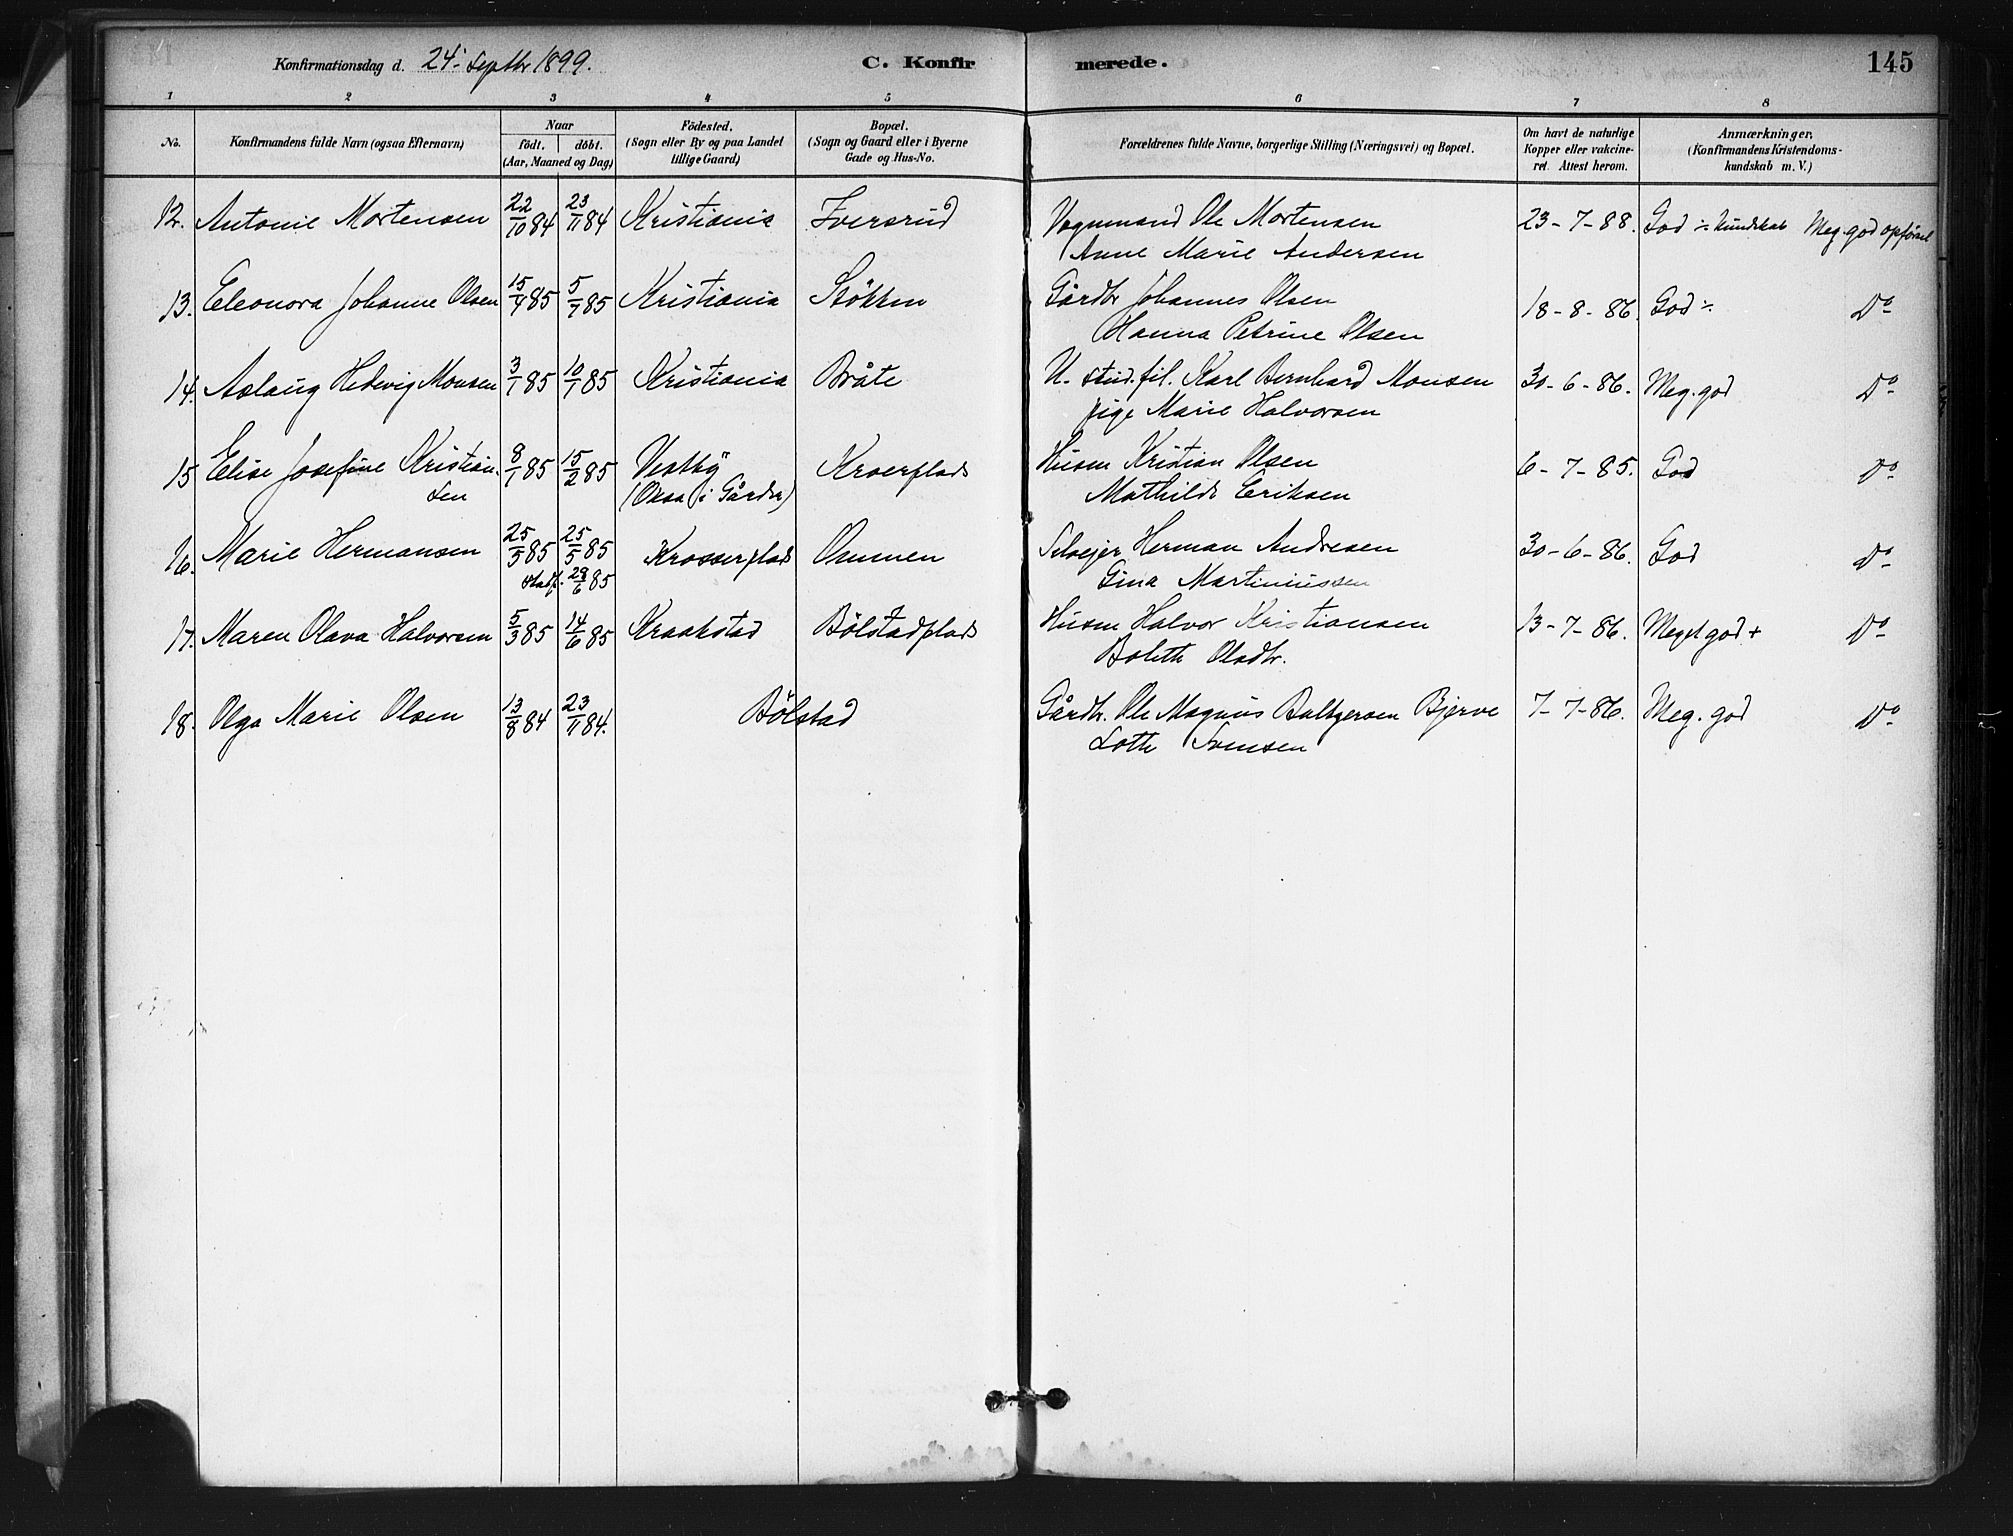 Konfirmationsdag d. 24. Septbr 1899. C. Konfirmerede. 145
1 2 3 4 5 6 7 8
No. Konfirmandens fulde Navn (ogsaa Efternavn) Naar födt. döbt. (Aar, Maaned og Dag) Födested. (Sogn eller By og paa Landet tillige Gaard) Bopæl. (Sogn og Gaard eller i Byerne Gade og Hus-No. Forældrenes fulde Navne, borgerlige Stilling (Næringsvei) og Bopæl. Om havt de naturlige Kopper eller vakcineret. Attest herom. Anmærkninger, (Konfirmandens Kristendomskundskab m. V.)
12. Antonie Mortensen 22/10 84 23/11 84 Kristiania Iversrud Vognmand Ole Mortensen 23-7-88. God ÷ kundskab Meg. god opførsel
Anne Marie Andersen
13. Eleonora Johanne Olsen 15/4 85 5/7 85 Kristiania Stökken Gårdbr Johannes Olsen 18-8-86. God ÷ Do
Hanna Petrine Olsen
14. Aslaug Hedvig Monsen 3/1 85 10/1 85 Kristiania Bråte U. stud. fil. Karl Bernhard Monsen 30-6-86. Meg. god Do
pige Marie Halvorsen
15 Elise Josefine Kristian- 8/1 85 15/2 85 Vestby Kroerplads Husm Kristian Olsen 6-7-85. God Do
sen (Oksa i Gårder) Mathilde Eriksen
16. Marie Hermansen 25/5 85 25/5 85 Krosserplads Ommen Selvejer Herman Andresen 30-6-86. God Do
stadf. 28/6 85 Gina Martiniussen
17. Maren Olava Halvorsen 5/3 85 14/6 85 Kraakstad Bölstadplads Husm Halvor Kristiansen 13-7-86. Meget god + Do
Boleth Olsdtr.
18. Olga Marie Olsen 13/8 84 23/11 84. Bölstad Gårdbr. Ole Magnus Baltzersen Bjerve 7-7-86. Meg. god Do
Lotte Svensen